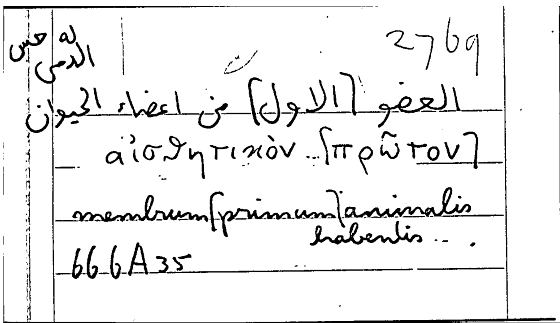 2769
العضو [الاول] من اعضاء الحيوان
الدمى
له حس
αἰσθητικὸν .. [πρῶτον]
membrum [primum] animalis
habentis ...
666A35